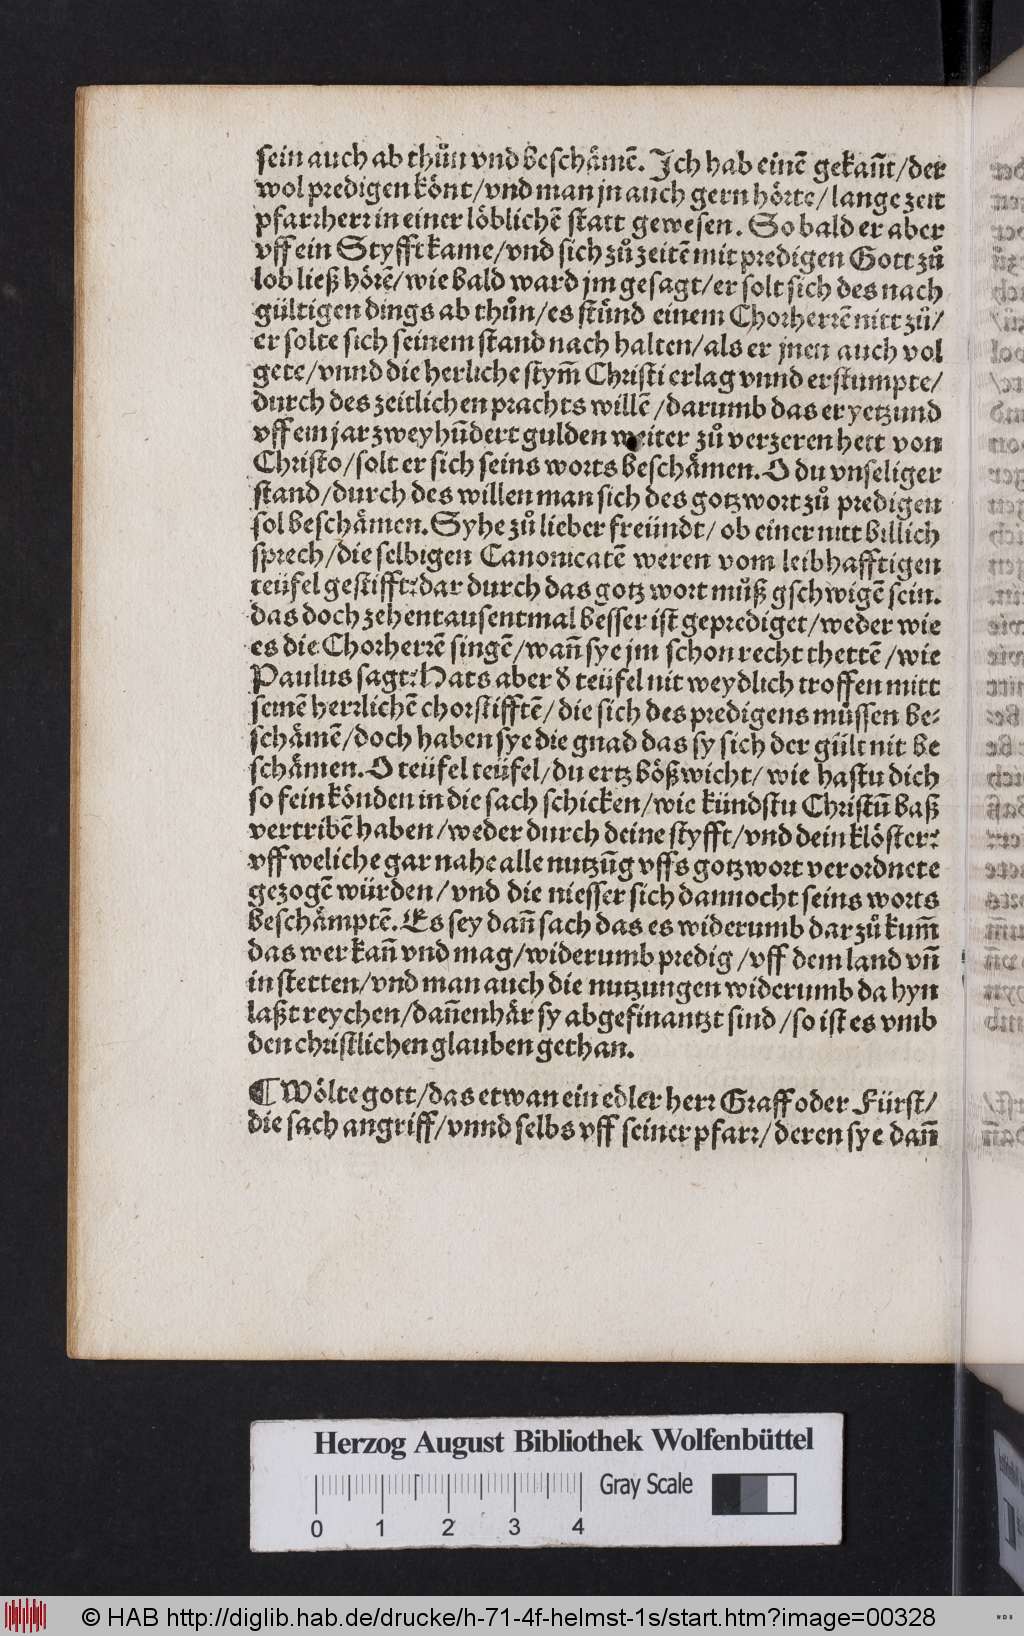 sein auch ab thůn vnd beschämē. Ich hab einē gekañt/der
wol predigen könt/vnd man jn auch gern hörte/lange zeit
pfarrherr in einer löblichē statt gewesen. So bald er aber
vff ein Styfft kame/vnd sich zů zeitē mit predigen Gott zů
lob ließ hörē/wie bald ward jm gesagt/er solt sich des nach
gültigen dings ab thůn/es stünd einem Chorherrē nitt zů/
er solte sich seinem stand nach halten/als er jnen auch vol
gete/vnnd die herliche stym̄ Christi erlag vnnd erstumpte/
durch des zeitlichen prachts willē/darumb das er yetzund
vff em jar zwey hūdert gulden weiter zů verzeren hett von
Christo/solt er sich seins worts beschämen. O du vnseliger
stand/durch des willen man sich des gotzwort zů predigen
sol beschämen. Syhe zů lieber freündt/ob einer nitt billich
sprech/die selbigen Canonicatē weren vom leibhafftigen
teüfel gestifft: dar durch das gotz wort můß gschwigē sein.
das doch zehentausentmal besser ist geprediget/weder wie
es die Chorherrē singē/wañ sye jm schon recht thettē/wie
Paulus sagt: Hats aber d̄ teüfel nit weydlich troffen mitt
seinē herrlichē chorstifftē/die sich des predigens müssen be⸗
schämē/doch haben sye die gnad das sy sich der gült nit be
schämen. O teüfel teüfel/du ertz bößwicht/wie hastu dich
so fein könden in die sach schicken/wie kündstu Christū baß
vertribē haben/weder durch deine styfft/vnd dein klöster:
vff weliche gar nahe alle nutzūg vffs gotzwort verordnete
gezogē würden/vnd die niesser sich dannocht seins worts
beschämptē. Es sey dañ sach das es widerumb dar zů kum̄
das wer kañ vnd mag/widerumb predig/vff dem land vñ
in stetten/vnd man auch die nutzungen widerumb da hyn
laßt reychen/dañenhär sy abgefinantzt sind/so ist es vmb
den christlichen glauben gethan.
¶ Wölte gott/das etwan ein edler herr Graff oder Fürst/
die sach angriff/vnnd selbs vff seiner pfarr/deren sye dañ
Herzog August Bibliothek Wolfenbüttel
Gray Scale
0 1 2 3 4
© HAB http://diglib.hab.de/drucke/h-71-4f-helmst-1s/start.htm?image=00328